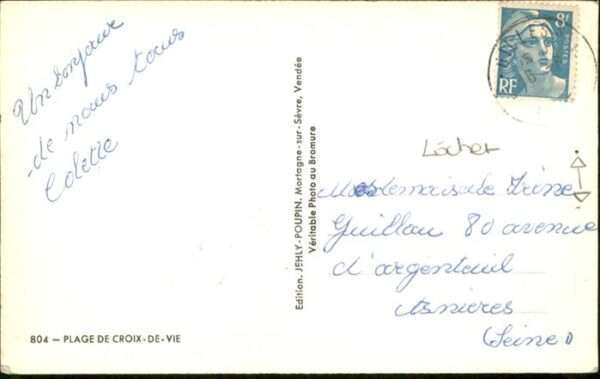 Un bonjour
de nous tous
Colette
804 — PLAGE DE CROIX-DE-VIE
Edition. JEHLY-POUPIN, Mortagne-sur-Sèvre, Vendée
Véritable Photo au Bromure
8F
POSTES
RF
Lâcher
Mademoiselle Irène
Guillou 80 avenue
d'argenteuil
Asnieres
(Seine)